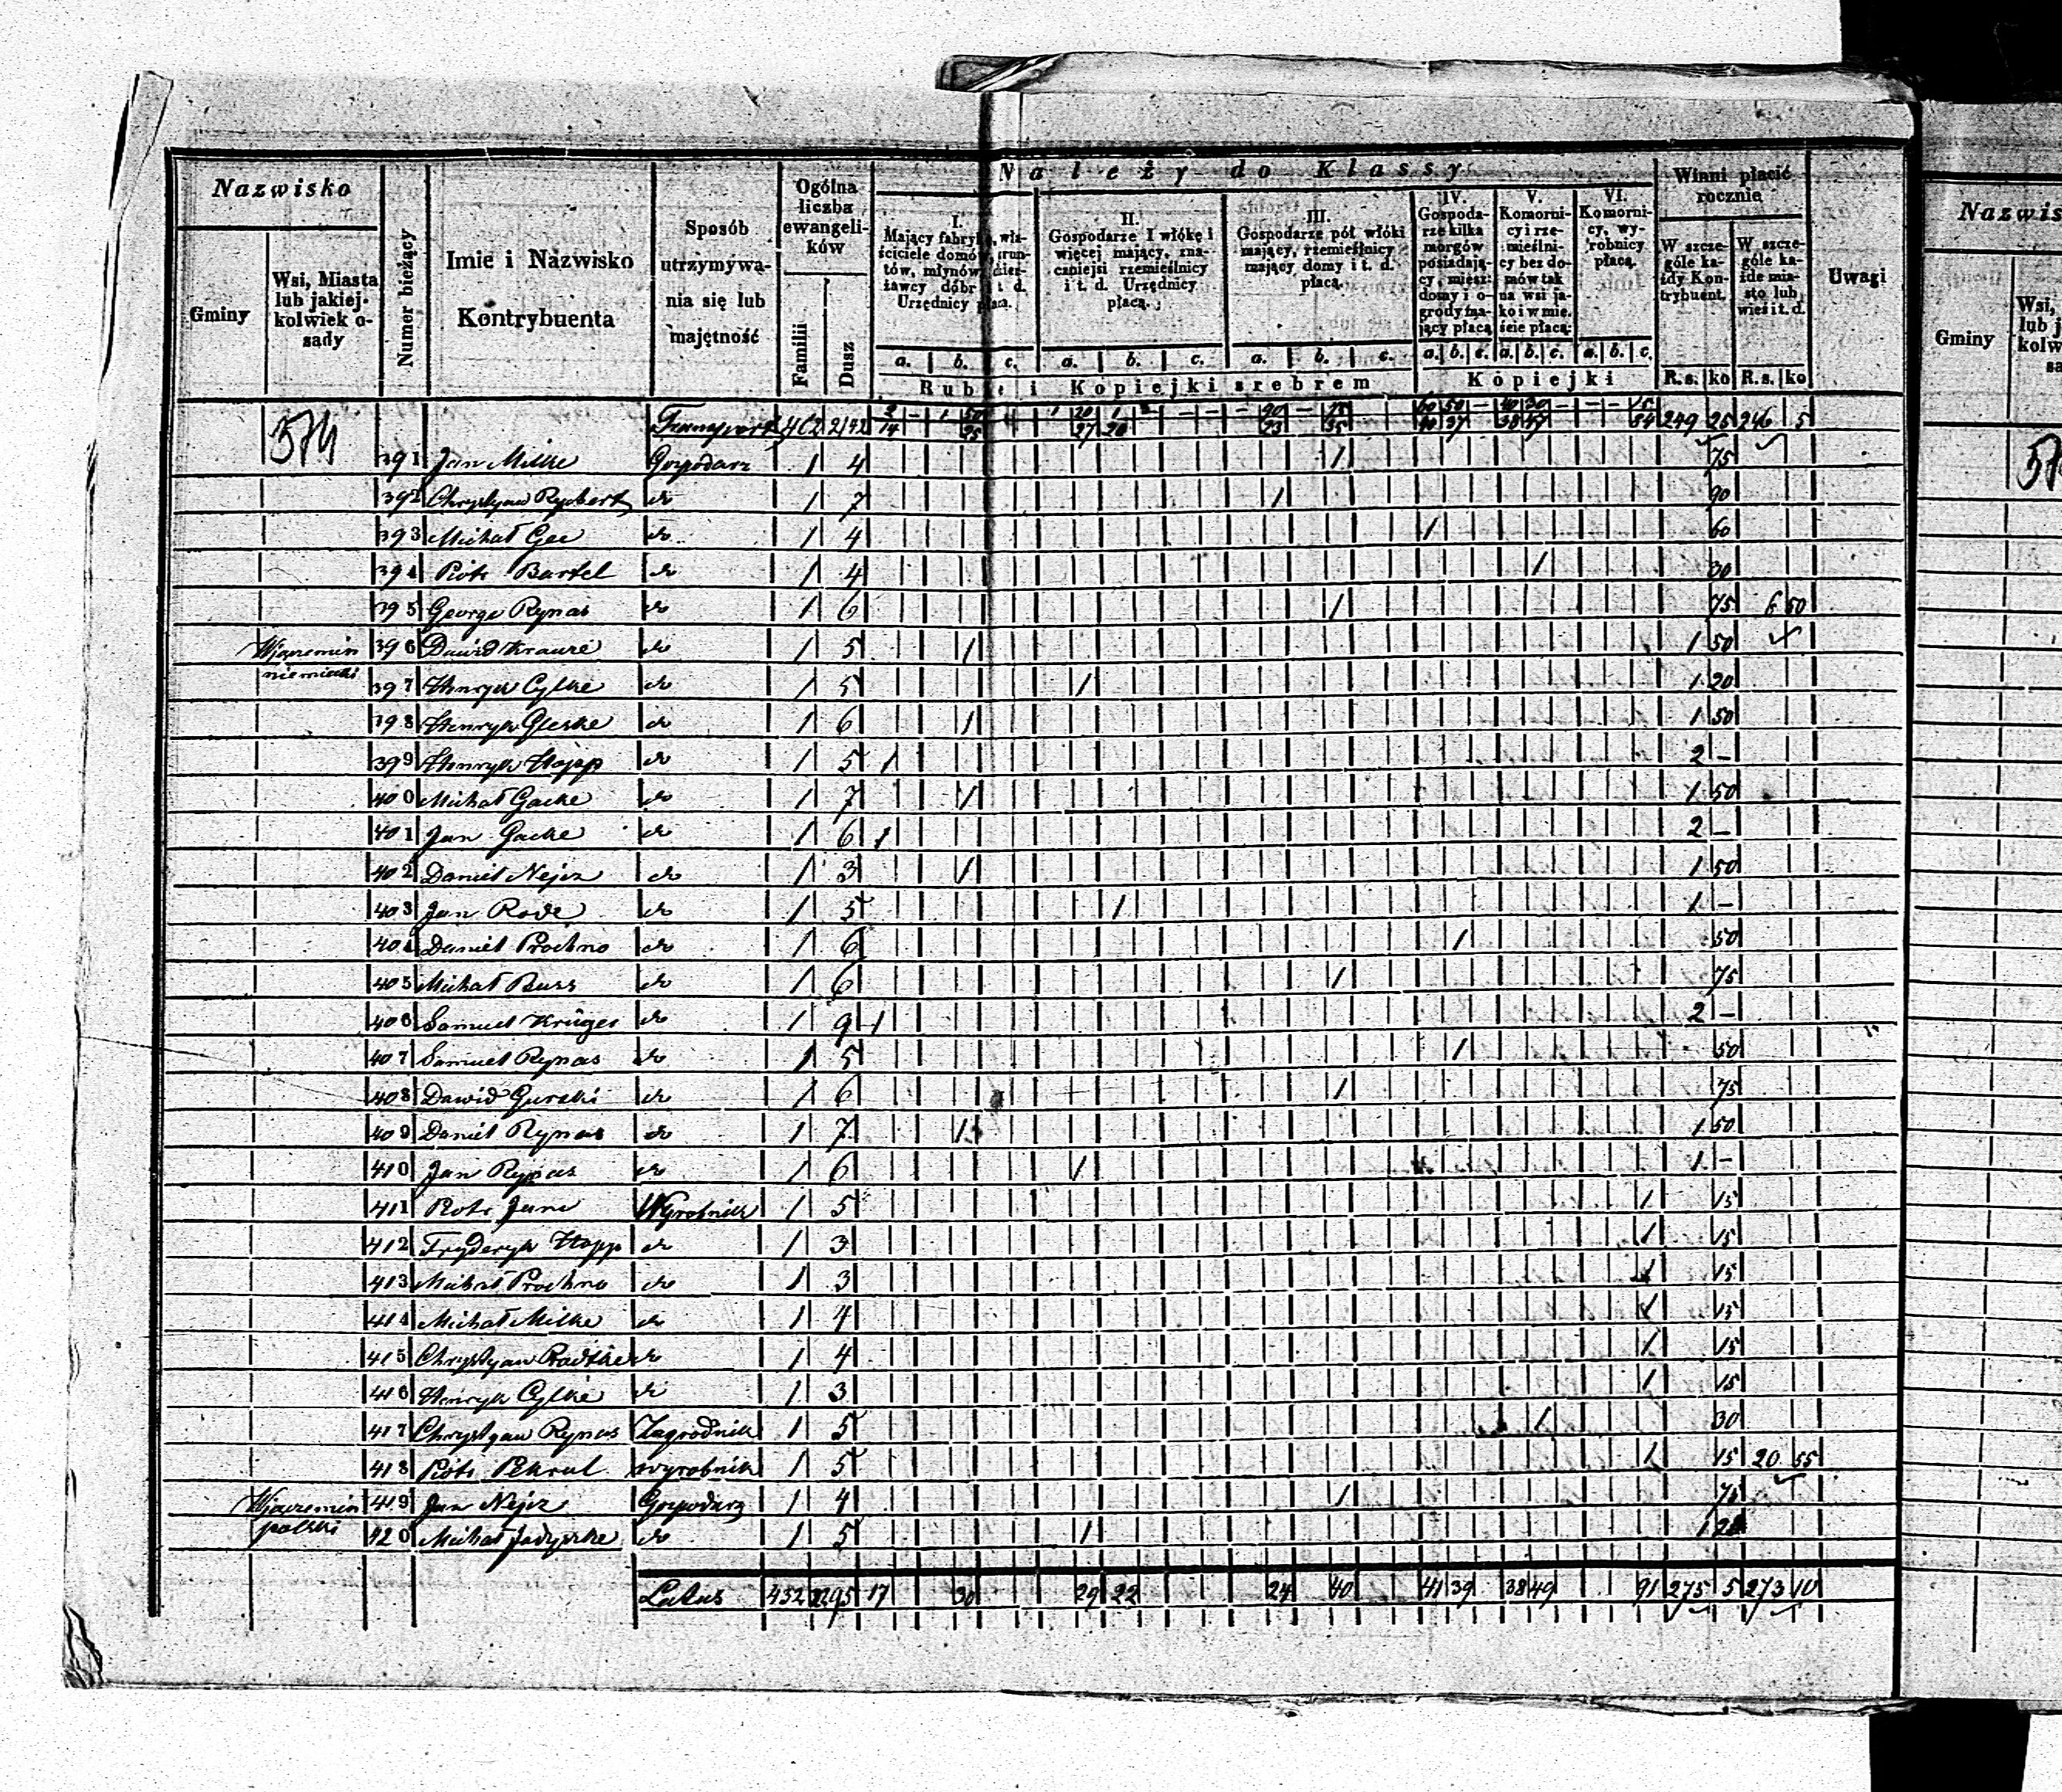 Nazwisko
Gminy
Wsi, Miasta lub jakiej-kolwiek o-sady
Numer bieżący
Imie i Nazwisko Kontrybuenta
Sposób utrzymywa-nia się lub majętność
Ogólna liczba ewangeli-ków
Familii
Dusz
Należy do Klassy
I. Mający fabryki, wła-ściciele domów, grun-tów, młynów, dzier-żawcy dóbr i t. d. Urzędnicy płacą.
II. Gospodarze 1 włókę i więcej mający, zna-czniejsi rzemieślnicy i t. d. Urzędnicy płacą.
III. Gospodarze pół włóki mający, rzemieślnicy mający domy i t. d. płacą.
IV. Gospoda-rze kilka morgów posiadają-cy, miesz: domy i o-grody ma-jący płacą
V. Komorni-cy i rze-mieślni-cy bez do-mów tak na wsi ja-ko i w mie-ście płacą:
VI. Komorni-cy, wy-robnicy płacą.
Winni płacić rocznie
W szcze-góle ka-żdy Kon-trybuent.
W szcze-góle ka-żde mia-sto lub wieś i t. d.
Uwagi
a. b. c. a. b. c. a. b. c. a. b. c. a. b. c. a. b. c.
Ruble i Kopiejki srebrem Kopiejki R.s. ko R.s. ko
574 Transport 402 2142 14 25 27 20 23 35 40 37 38 47 84 249 25 246 5
391 Jan Milke Gospodarz 1 4 1 75
392 Chrystyan Rychert do 1 7 1 90
393 Michał Gee do 1 4 1 60
394 Piotr Bartel do 1 4 1 30
395 George Rynas do 1 6 1 75 6 50
Wjaremin niemiecki 396 Dawid Krause do 1 5 1 1 50
397 Henryk Cylke do 1 5 1 1 20
398 Henryk Gleske do 1 6 1 1 50
399 Henryk Happ do 1 5 1 2 –
400 Michał Gacke do 1 7 1 1 50
401 Jan Gacke do 1 6 1 2 –
402 Daniel Nejcz do 1 3 1 1 50
403 Jan Rode do 1 5 1 1 –
404 Daniel Prochno do 1 6 1 50
405 Michał Buss do 1 6 1 75
406 Samuel Krüger do 1 9 1 2 –
407 Samuel Rynas do 1 5 1 50
408 Dawid Gurski do 1 6 1 75
409 Daniel Rynas do 1 7 1 1 50
410 Jan Rynas do 1 6 1 1 –
411 Piotr Jans Wyrobnik 1 5 1 15
412 Fryderyk Happ do 1 3 1 15
413 Michał Prochno do 1 3 1 15
414 Michał Milke do 1 4 1 15
415 Chrystyan Radtke do 1 4 1 15
416 Henryk Cylke do 1 3 1 15
417 Chrystyan Rynas Zagrodnik 1 5 1 30
418 Piotr Pekrul wyrobnik 1 5 1 15 20 55
Wjaremin polski 419 Jan Nejcz Gospodarz 1 4 1 75
420 Michał Jadyszke do 1 5 1 1 20
Latus 432 2295 17 30 29 22 24 40 41 39 38 49 91 275 5 273 10
Nazwis
Gminy
Wsi,
lub j
kolw
sa